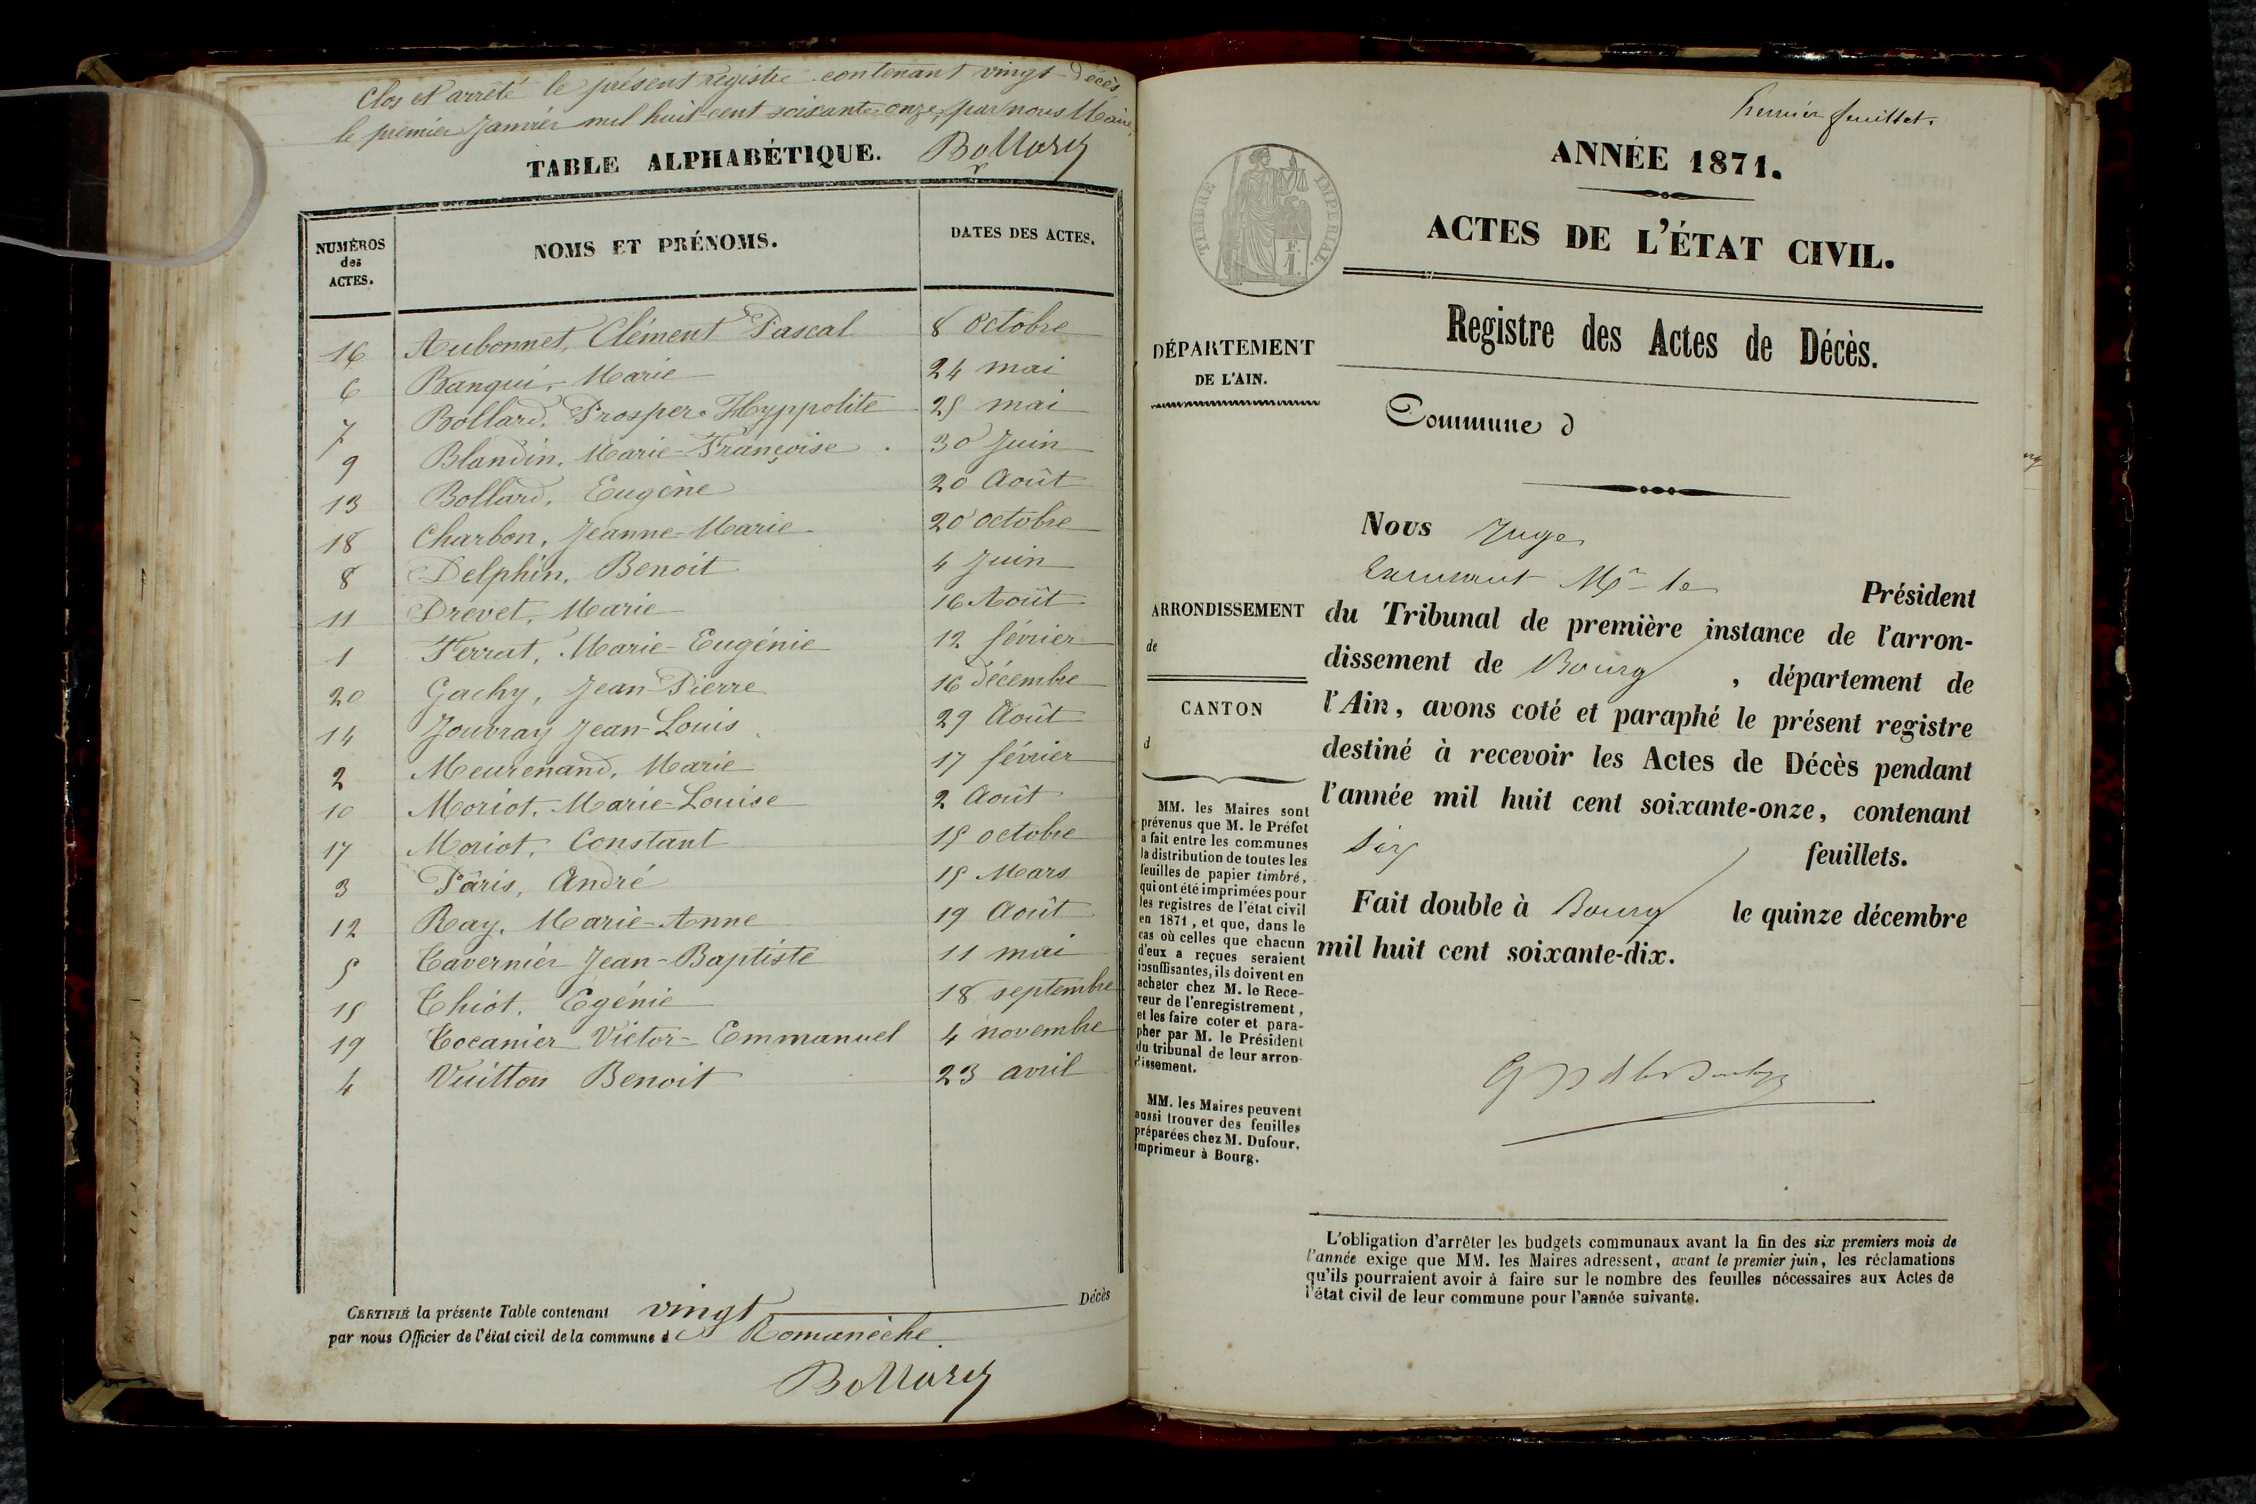 Clos et arrêté le présent registre contenant vingt Décès,
le premier Janvier mil huit-cent soixante-onze, par nous Maire.
TABLE ALPHABÉTIQUE. Bollard
NUMÉROS des ACTES. NOMS ET PRÉNOMS. DATES DES ACTES.
16 Aubonnet, Clément Pascal 8 Octobre
6 Banqui, Marie 24 mai
7 Bollard, Prosper Hyppolite 25 mai
9 Blandin, Marie-Françoise 30 Juin
13 Bollard, Eugène 20 Août
18 Charbon, Jeanne-Marie 20 octobre
8 Delphin, Benoit 4 Juin
11 Drevet, Marie 16 Août
1 Ferrat, Marie-Eugénie 12 février
20 Gachy, Jean-Pierre 16 décembre
14 Jouvray Jean-Louis 29 Août
2 Meurenand, Marie 17 février
10 Moriot, Marie-Louise 2 Août
17 Moriot, Constant 15 octobre
3 Pâris, André 15 Mars
12 Ray, Marie-Anne 19 Août
5 Tavernier Jean-Baptiste 11 mai
15 Thiot, Egénie 18 septembre
19 Tocanier Victor-Emmanuel 4 novembre
4 Vuitton Benoit 23 avril
CERTIFIÉ la présente Table contenant vingt Décès
par nous Officier de l'état civil de la commune de Romanèche.
Bollard
Premier feuillet.
ANNÉE 1871.
ACTES DE L'ÉTAT CIVIL.
TIMBRE IMPÉRIAL.
1 F.
Registre des Actes de Décès.
DÉPARTEMENT
DE L'AIN.
Commune d
ARRONDISSEMENT
de
CANTON
d
MM. les Maires sont
prévenus que M. le Préfet
a fait entre les communes
la distribution de toutes les
feuilles de papier timbré,
qui ont été imprimées pour
les registres de l'état civil
en 1871, et que, dans le
cas où celles que chacun
d'eux a reçues seraient
insuffisantes, ils doivent en
acheter chez M. le Rece-
veur de l'enregistrement,
et les faire coter et para-
pher par M. le Président
du tribunal de leur arron-
dissement.
MM. les Maires peuvent
aussi trouver des feuilles
préparées chez M. Dufour,
imprimeur à Bourg.
Nous Juge
Mr le Président
du Tribunal de première instance de l'arron-
dissement de Bourg, département de
l'Ain, avons coté et paraphé le présent registre
destiné à recevoir les Actes de Décès pendant
l'année mil huit cent soixante-onze, contenant
Six feuillets.
Fait double à Bourg le quinze décembre
mil huit cent soixante-dix.
L'obligation d'arrêter les budgets communaux avant la fin des six premiers mois de
l'année exige que MM. les Maires adressent, avant le premier juin, les réclamations
qu'ils pourraient avoir à faire sur le nombre des feuilles nécessaires aux Actes de
l'état civil de leur commune pour l'année suivante.